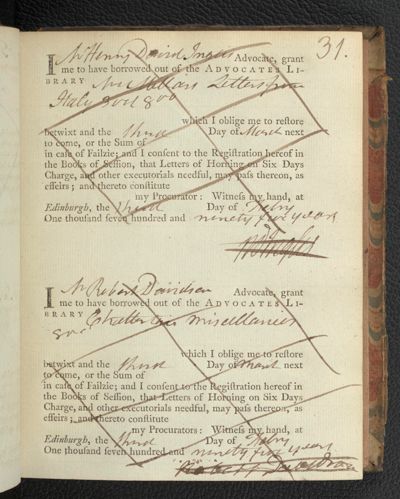 31.
I Mr Henry David Inglis Advocate, grant
me to have borrowed out of the ADVOCATES LI-
BRARY Mrs Millars Letters from
Italy 2 vol 8vo
which I oblige me to restore
betwixt and the third Day of March next
to come, or the Sum of
in case of Failzie; and I consent to the Registration hereof in
the Books of Session, that Letters of Horning on Six Days
Charge, and other executorials needful, may pass thereon, as
effeirs; and thereto constitute
my Procurator: Witness my hand, at
Edinburgh, the third Day of Febry
One thousand seven hundred and ninety five years
I Mr Robert Davidson Advocate, grant
me to have borrowed out of the ADVOCATES LI-
BRARY miscellanies
8vo
which I oblige me to restore
betwixt and the third Day of March next
to come, or the Sum of
in case of Failzie; and I consent to the Registration hereof in
the Books of Session, that Letters of Horning on Six Days
Charge, and other executorials needful, may pass thereon, as
effeirs; and thereto constitute
my Procurators: Witness my hand, at
Edinburgh, the third Day of Febry
One thousand seven hundred and ninety five years
Robert Davidson